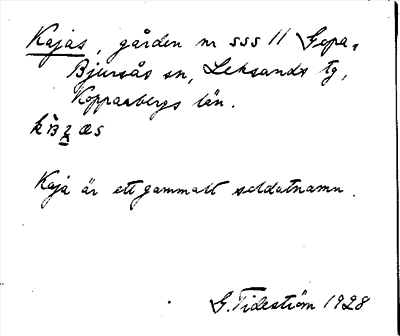 Kajas, gården nr sss 11 Gopa,
Bjursås sn, Leksands tg,
Kopparbergs län.
Kaja är ett gammalt soldatnamn.
G. Tideström 1928